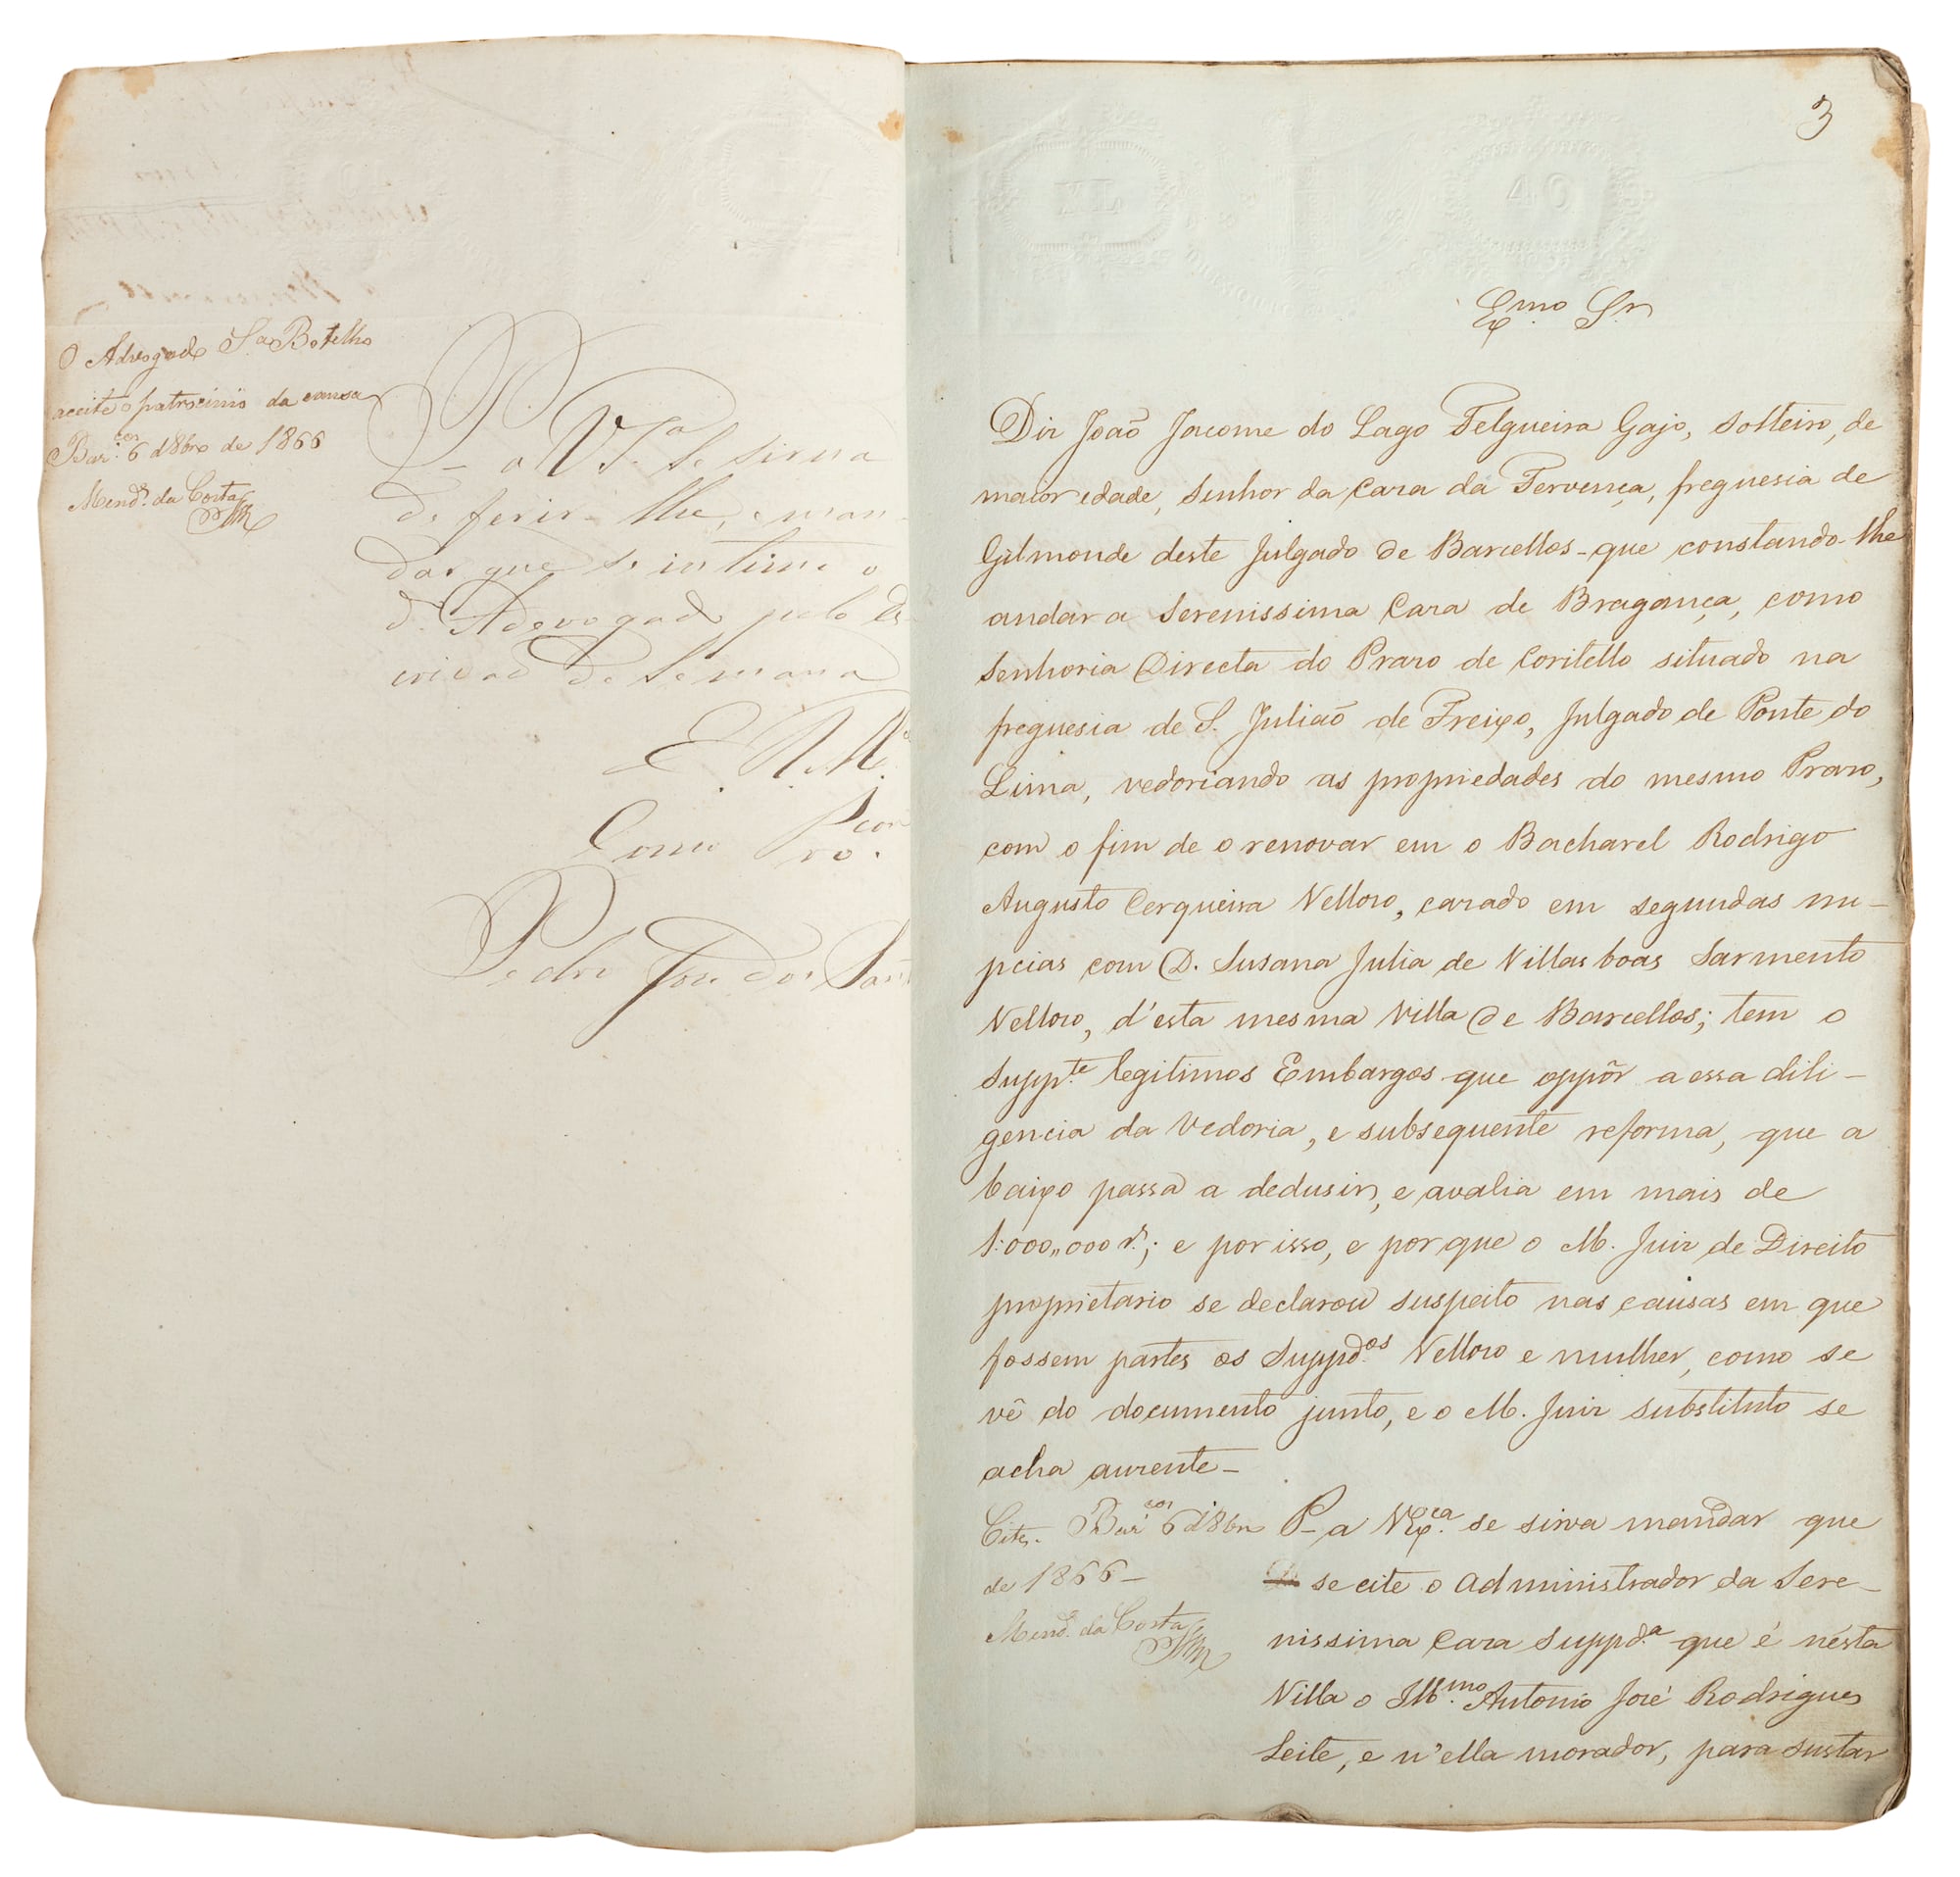 O Advogado S.ª Botelho
aceite o patrocinio da causa
Bar.cos 6 d'8bro de 1866
Mend.s da Costa
P a V S.ª Se sirva
de ferir-lhe, e man-
dar que se intime o
d.º Adevogado pelo Es
crivão de Semana
E R M.ce
Como Pcor
ro.
Pedro José dos San
3
Exmo Sr
Diz João Jacome do Lago Felgueira Gajo, solteiro, de
maior edade, Senhor da Caza da Fervença, freguesia de
Gilmonde deste Julgado de Barcellos - que constando-lhe
andar a Serenissima Caza de Bragança, como
Senhoria Directa do Prazo de Coritello situado na
freguesia de S. Julião de Freixo, Julgado de Ponte do
Lima, vedoriando as propriedades do mesmo Prazo,
com o fim de o renovar em o Bacharel Rodrigo
Augusto Cerqueira Velloso, cazado em segundas nu-
pcias com D. Susana Julia de Villas boas Sarmento
Velloso, d'esta mesma Villa de Barcellos; tem o
Supp.te legitimos Embargos que oppôr a essa dili-
gencia da Vedoria, e subsequente reforma, que a
baixo passa a dedusir, e avalia em mais de
1:000,,000 r.s; e por isso, e porque o M. Juiz de Direito
proprietario se declarou suspeito nas causas em que
fossem partes os Suppd.os Velloso e mulher, como se
vê do documento junto, e o M. Juiz substituto se
acha auzente -
Cite. Bar.cos 6 d'8bro
de 1866 -
Mend.s da Costa
P- a V Ex.ca se sirva mandar que
se cite o Administrador da Sere-
nissima Caza Suppd.a que é nésta
Villa o Ill.mo Antonio José Rodrigues
Leite, e n'ella morador, para sustar